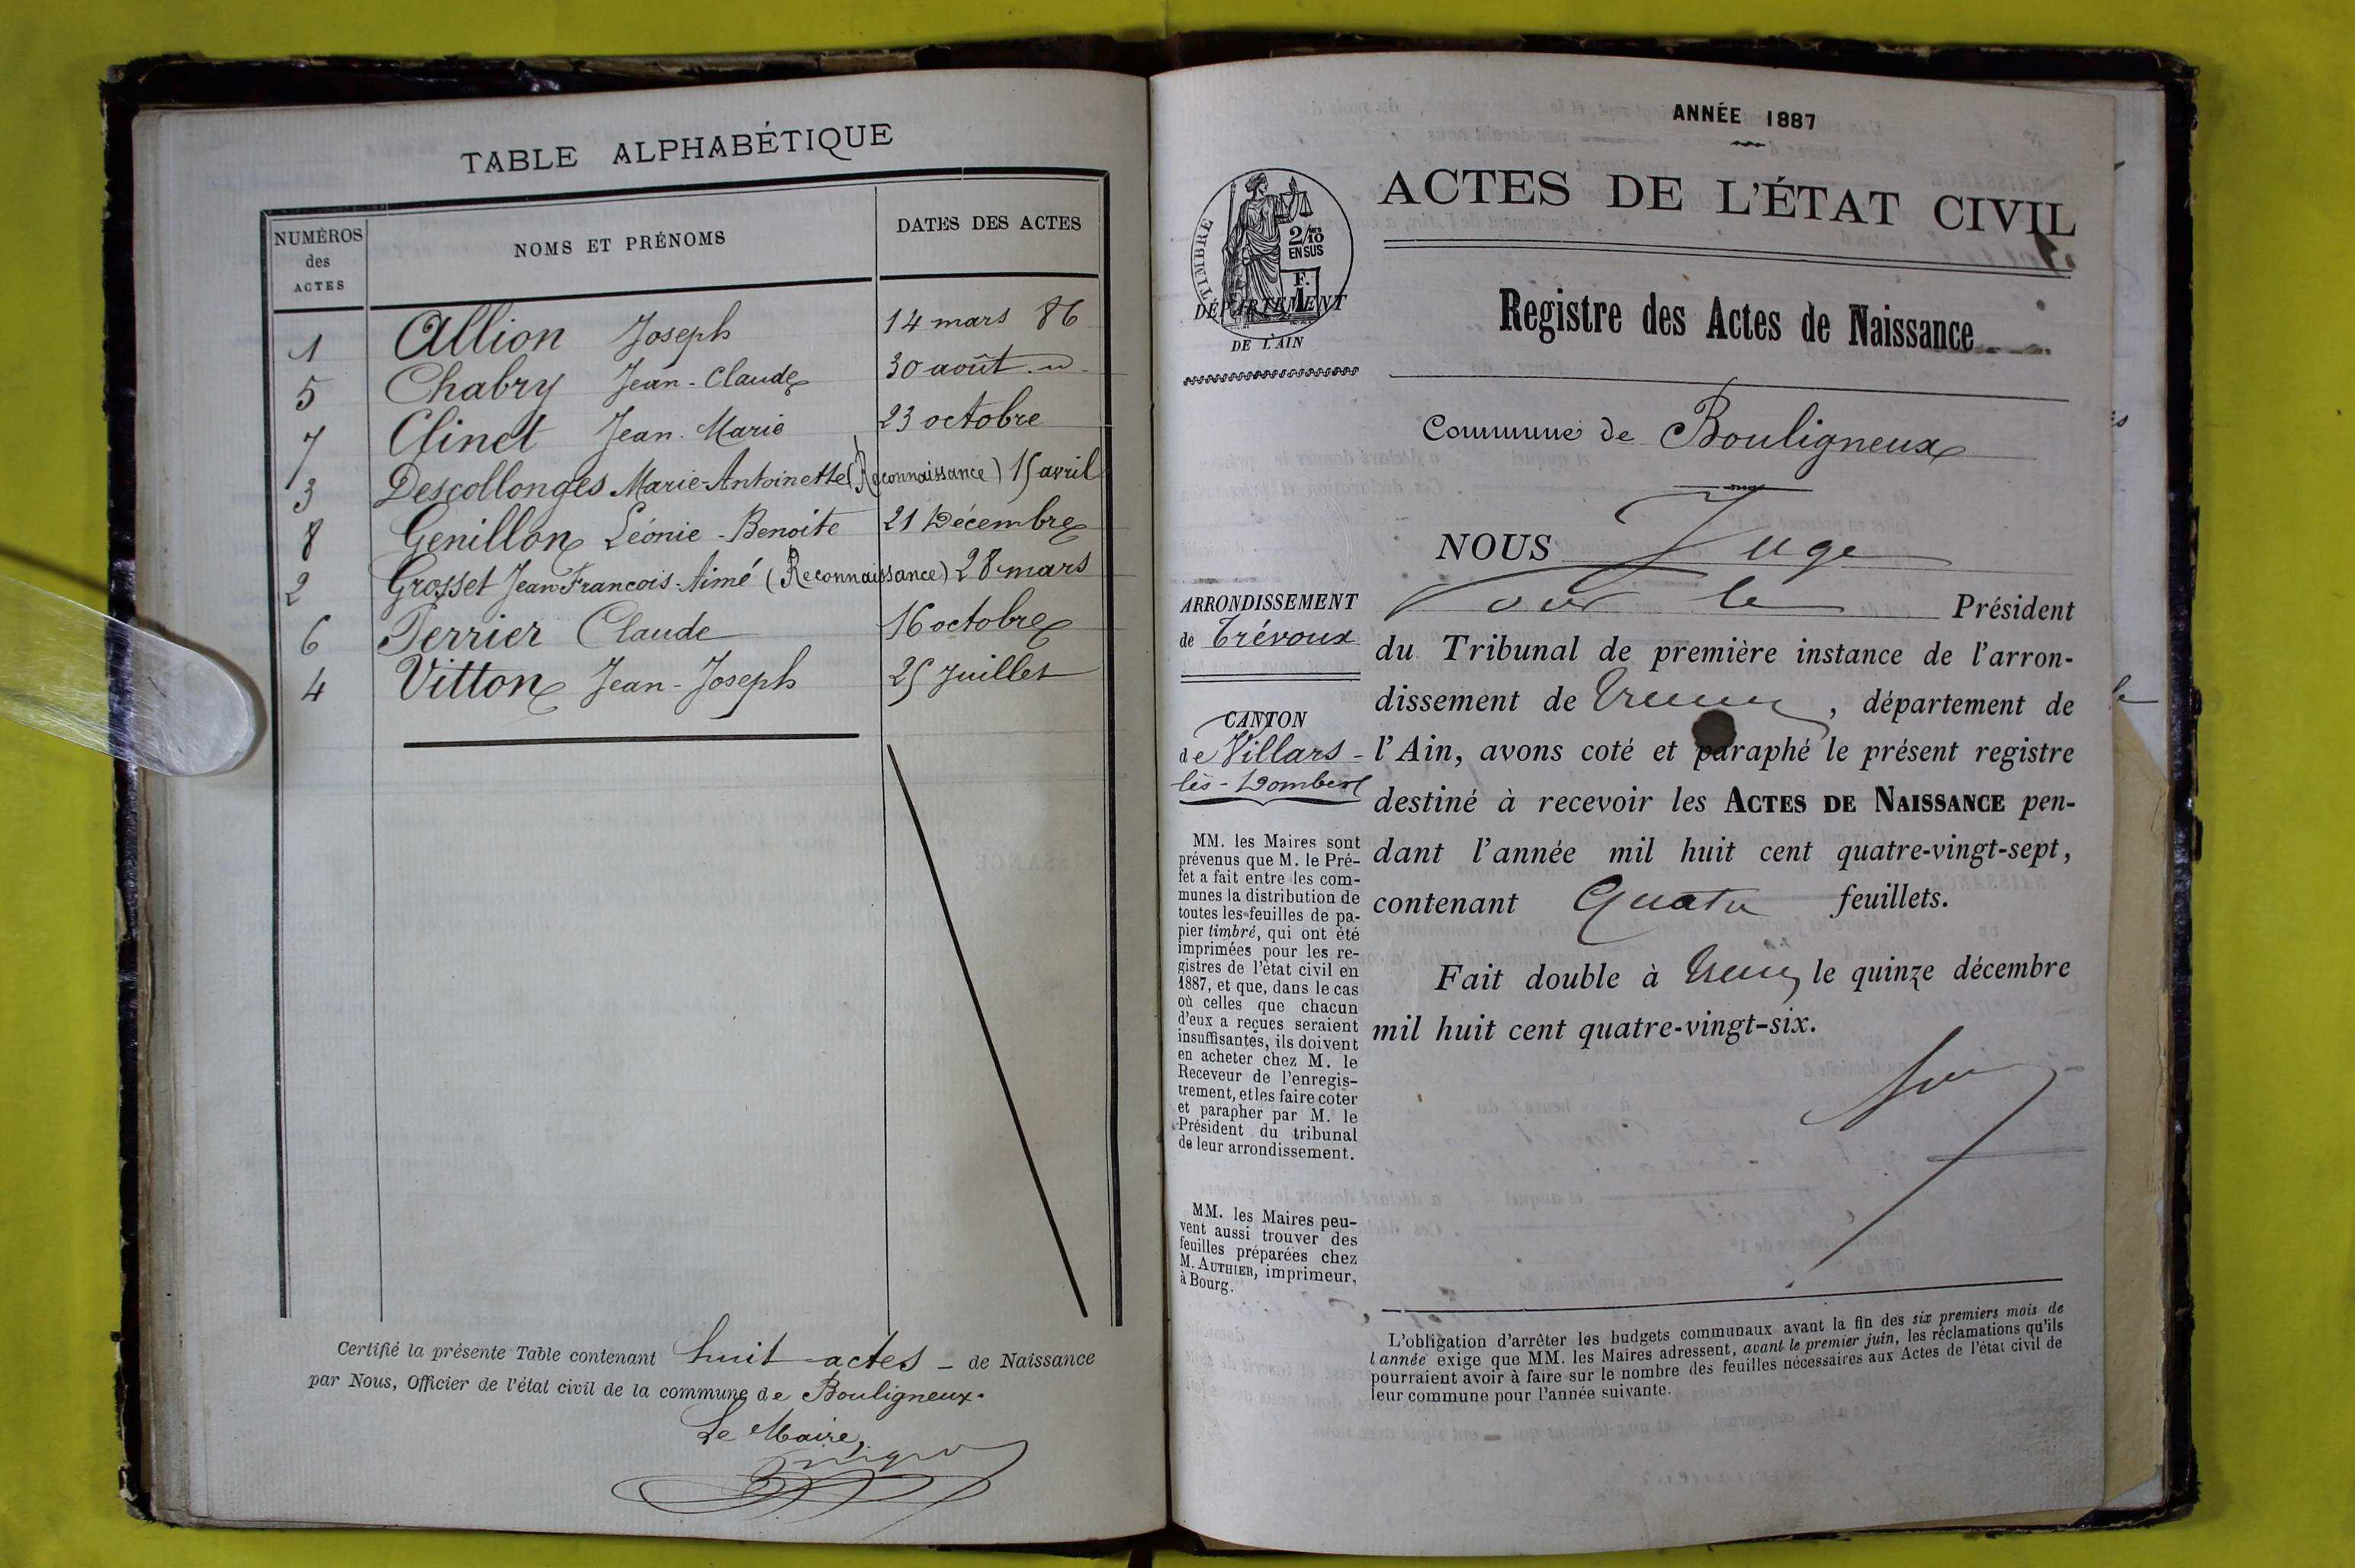 TABLE ALPHABÉTIQUE
NUMÉROS des ACTES NOMS ET PRÉNOMS DATES DES ACTES
1 Allion Joseph 14 mars 86
5 Chabry Jean-Claude 30 août
7 Clinet Jean-Marie 23 octobre
3 Descollonges Marie-Antoinette (Reconnaissance) 15 avril
8 Genillon Léonie-Benoite 21 Décembre
2 Grosset Jean-Francois-Aimé (Reconnaissance) 28 mars
6 Perrier Claude 16 octobre
4 Vitton Jean-Joseph 25 Juillet
Certifié la présente Table contenant huit actes - de Naissance
par Nous, Officier de l'état civil de la commune de Bouligneux.
Le Maire,
ANNÉE 1887
TIMBRE
2/10 EN SUS
F. 1
DÉPARTEMENT
DE L'AIN
ACTES DE L'ÉTAT CIVIL
Registre des Actes de Naissance
Commune de Bouligneux
ARRONDISSEMENT
de Trévoux
CANTON
de Villars-
lès-Dombes
MM. les Maires sont
prévenus que M. le Pré-
fet a fait entre les com-
munes la distribution de
toutes les feuilles de pa-
pier timbré, qui ont été
imprimées pour les re-
gistres de l'état civil en
1887, et que, dans le cas
où celles que chacun
d'eux a reçues seraient
insuffisantes, ils doivent
en acheter chez M. le
Receveur de l'enregis-
trement, et les faire coter
et parapher par M. le
Président du tribunal
de leur arrondissement.
MM. les Maires peu-
vent aussi trouver des
feuilles préparées chez
M. AUTHIER, imprimeur,
à Bourg.
NOUS Juge
Pour le Président
du Tribunal de première instance de l'arron-
dissement de Trévoux, département de
l'Ain, avons coté et paraphé le présent registre
destiné à recevoir les ACTES DE NAISSANCE pen-
dant l'année mil huit cent quatre-vingt-sept,
contenant Quatre feuillets.
Fait double à Trévoux le quinze décembre
mil huit cent quatre-vingt-six.
L'obligation d'arrêter les budgets communaux avant la fin des six premiers mois de
l'année exige que MM. les Maires adressent, avant le premier juin, les réclamations qu'ils
pourraient avoir à faire sur le nombre des feuilles nécessaires aux Actes de l'état civil de
leur commune pour l'année suivante.